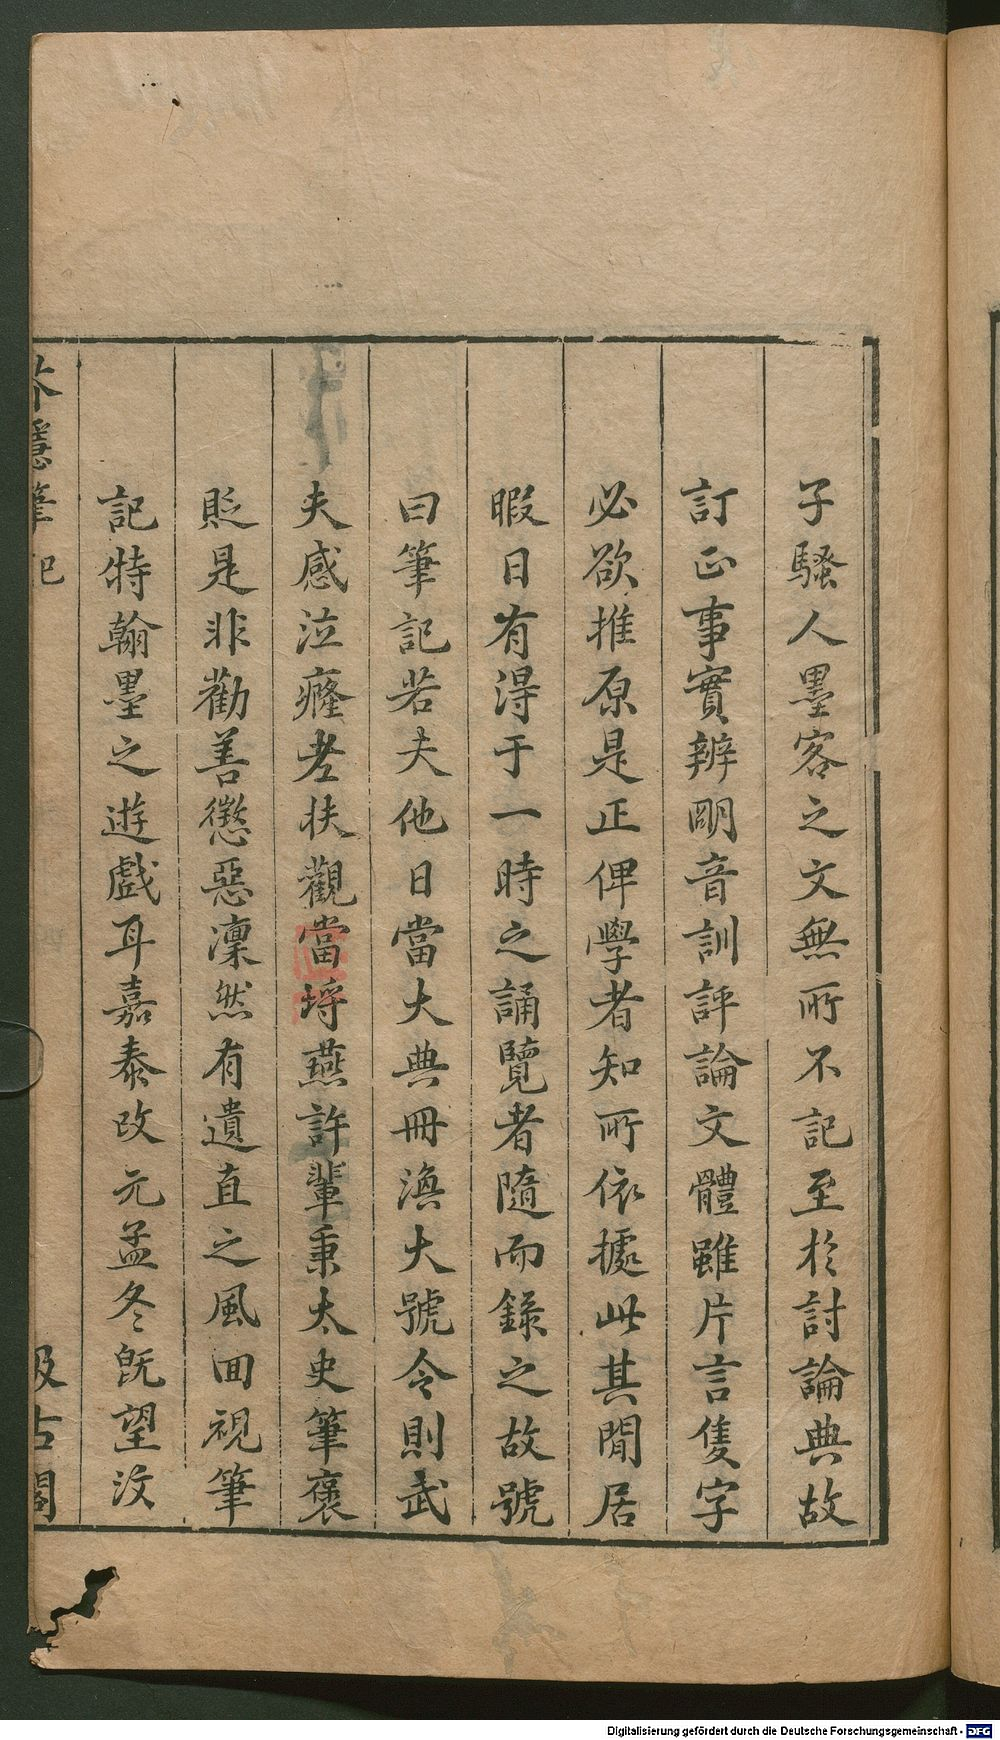 子騷人墨客之文無所不記至於討論典故
訂正事實辨明音訓評論文體雖片言隻字
必欲推原是正俾學者知所依據此其閒居
暇日有得于一時之誦覽者隨而錄之故號
曰筆記若夫他日當大典冊渙大號令則武
夫感泣癃老扶觀當埒燕許輩秉太史筆襃
貶是非勸善懲惡凜然有遺直之風囬視筆
記特翰墨之遊戲耳嘉泰改元孟冬旣望汶
芥隱筆記
汲古閣
Digitalisierung gefördert durch die Deutsche Forschungsgemeinschaft - DFG